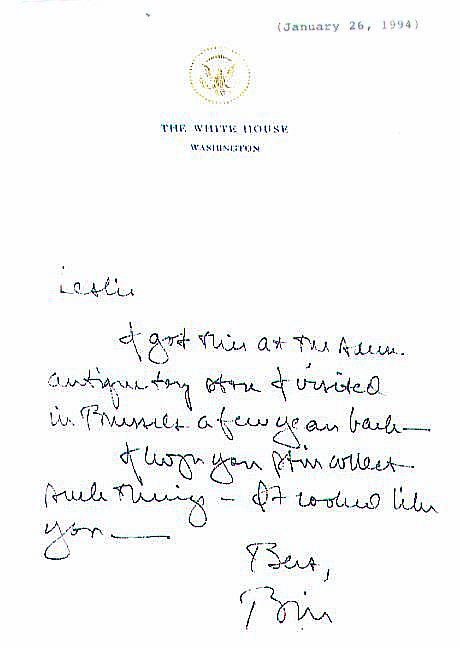 (January 26, 1994)
THE WHITE HOUSE
WASHINGTON
Leslie
I got this at the
antique toy store I visited
in Brussels a few years back—
I hope you still collect
such things – It looked like
you —
Best,
Bill